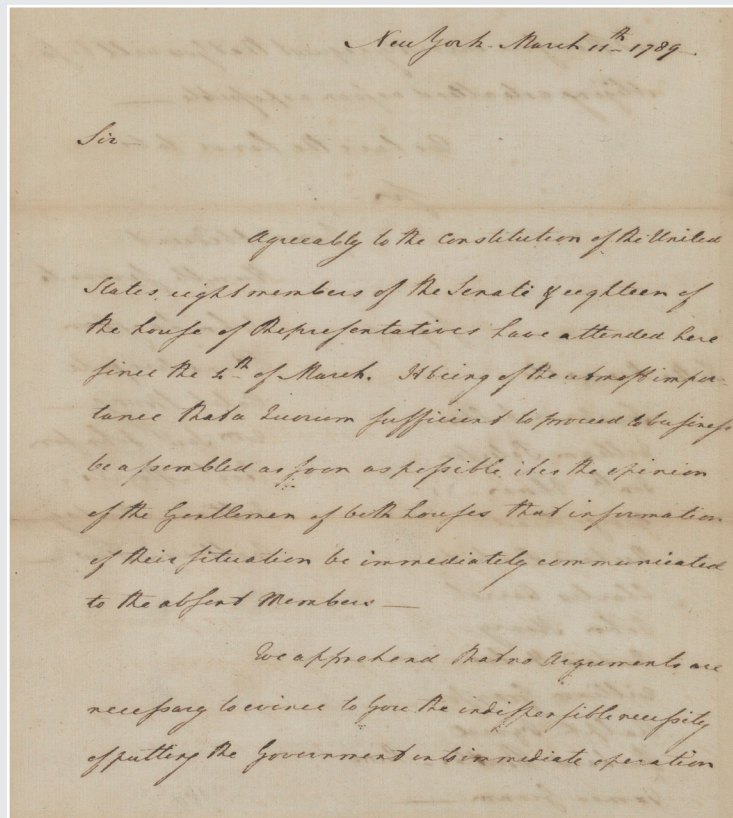 New York March 11th 1789.
Sir
Agreeably to the Constitution of the United
States, eight members of the Senate & eighteen of
the house of Representatives have attended here
since the 4th of March. It being of the utmost impor-
tance that a Quorum sufficient to proceed to business
be assembled as soon as possible it is the opinion
of the Gentlemen of both houses that information
of their situation be immediately communicated
to the absent Members —
We apprehend that no Arguments are
necessary to evince to you the indispensible necessity
of putting the Government into immediate operation